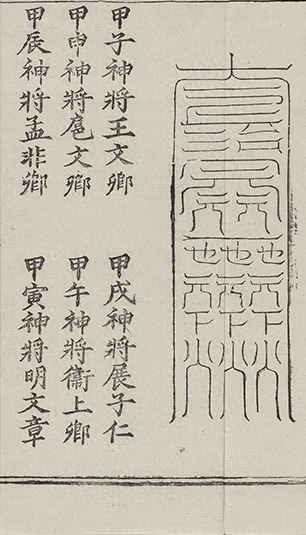 甲子神將王文卿
甲戌神將展子仁
甲申神將扈文卿
甲午神將衞上卿
甲辰神將孟非卿
甲寅神將明文章